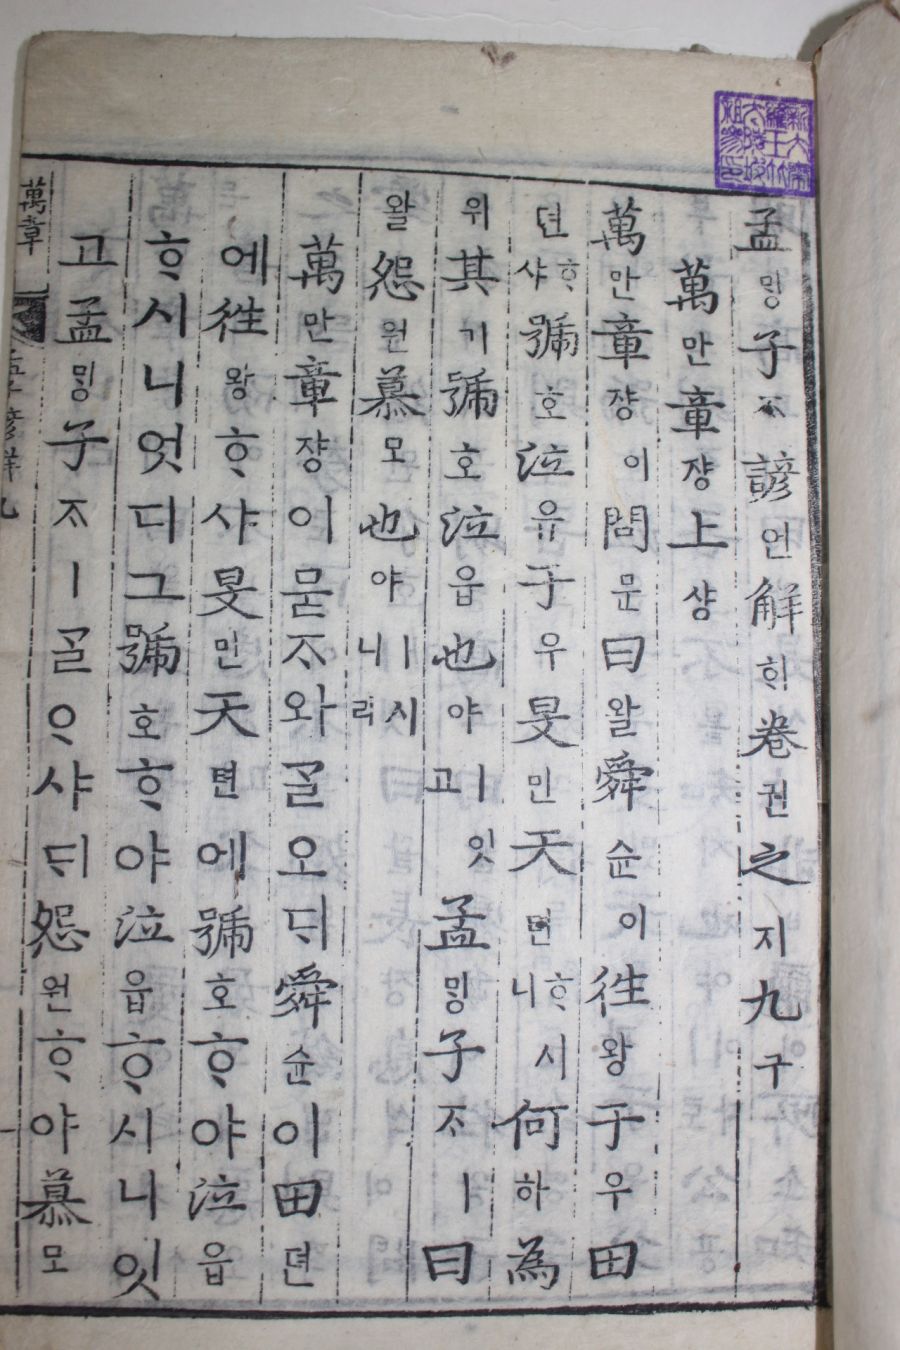 孟밍子ᄌᆞ諺언解ᄒᆡ卷권之지九구
萬만章쟝上샹
萬만章쟝이問문曰왈舜슌이往왕于우田
뎐ᄒᆞ샤號호泣읍于우旻민天텬ᄒᆞ시니何하為
위其기號호泣읍也야ㅣ잇고孟밍子ᄌᆞㅣ曰
왈怨원慕모也야ㅣ시니라
萬만章쟝이묻ᄌᆞ와ᄀᆞᆯ오ᄃᆡ舜슌이田뎐
에往왕ᄒᆞ샤旻민天텬에號호ᄒᆞ야泣읍
ᄒᆞ시니엇디그號호ᄒᆞ야泣읍ᄒᆞ시니잇
고孟밍子ᄌᆞㅣᄀᆞᆯᄋᆞ샤ᄃᆡ怨원ᄒᆞ야慕모
萬章